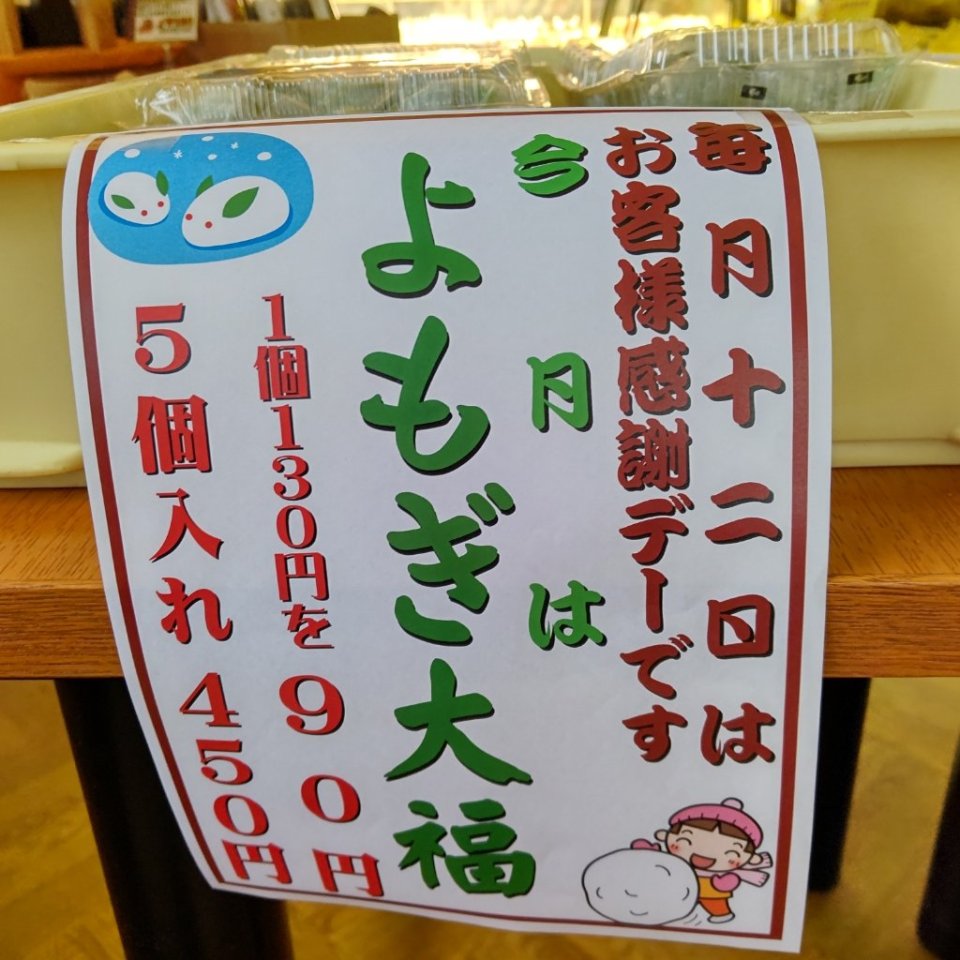 毎月十二日は
お客様感謝デーです
今月は
よもぎ大福
1個130円を90円
5個入れ450円